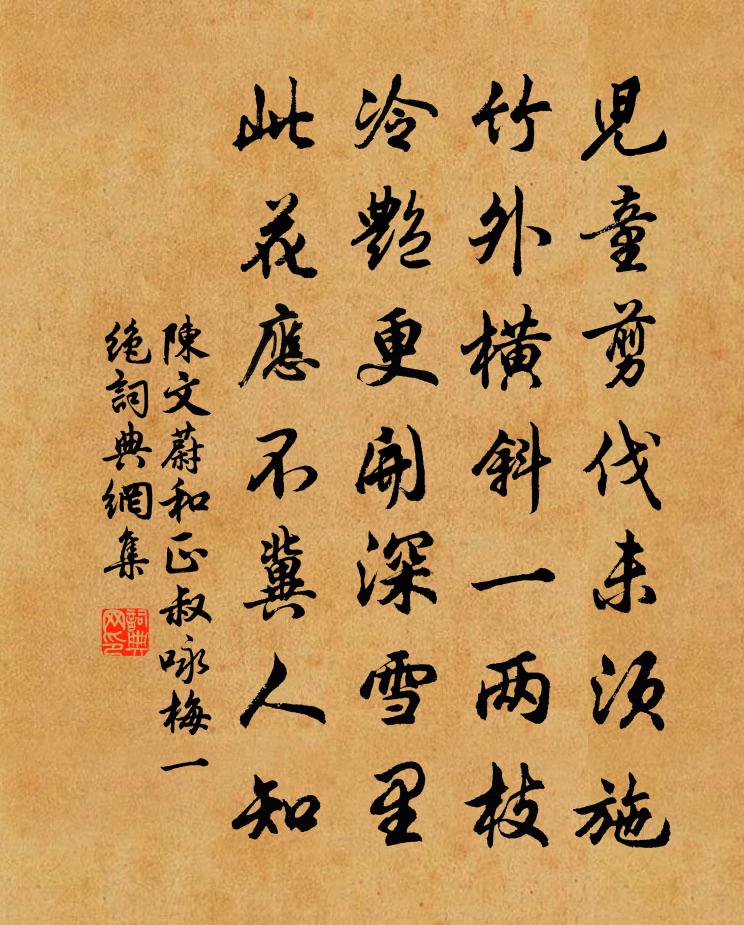 児童剪伐未須施
竹外橫斜一两枝
冷艷更開深雪里
此花應不冀人知
陳文蔚和正叔咏梅一
绝詞典網集
詞典网印